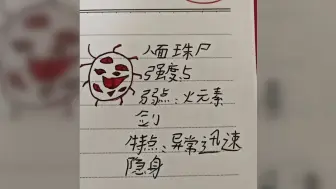 八面珠尸
强度5
弱点：火元素
剑
特点：异常迅速
隐身